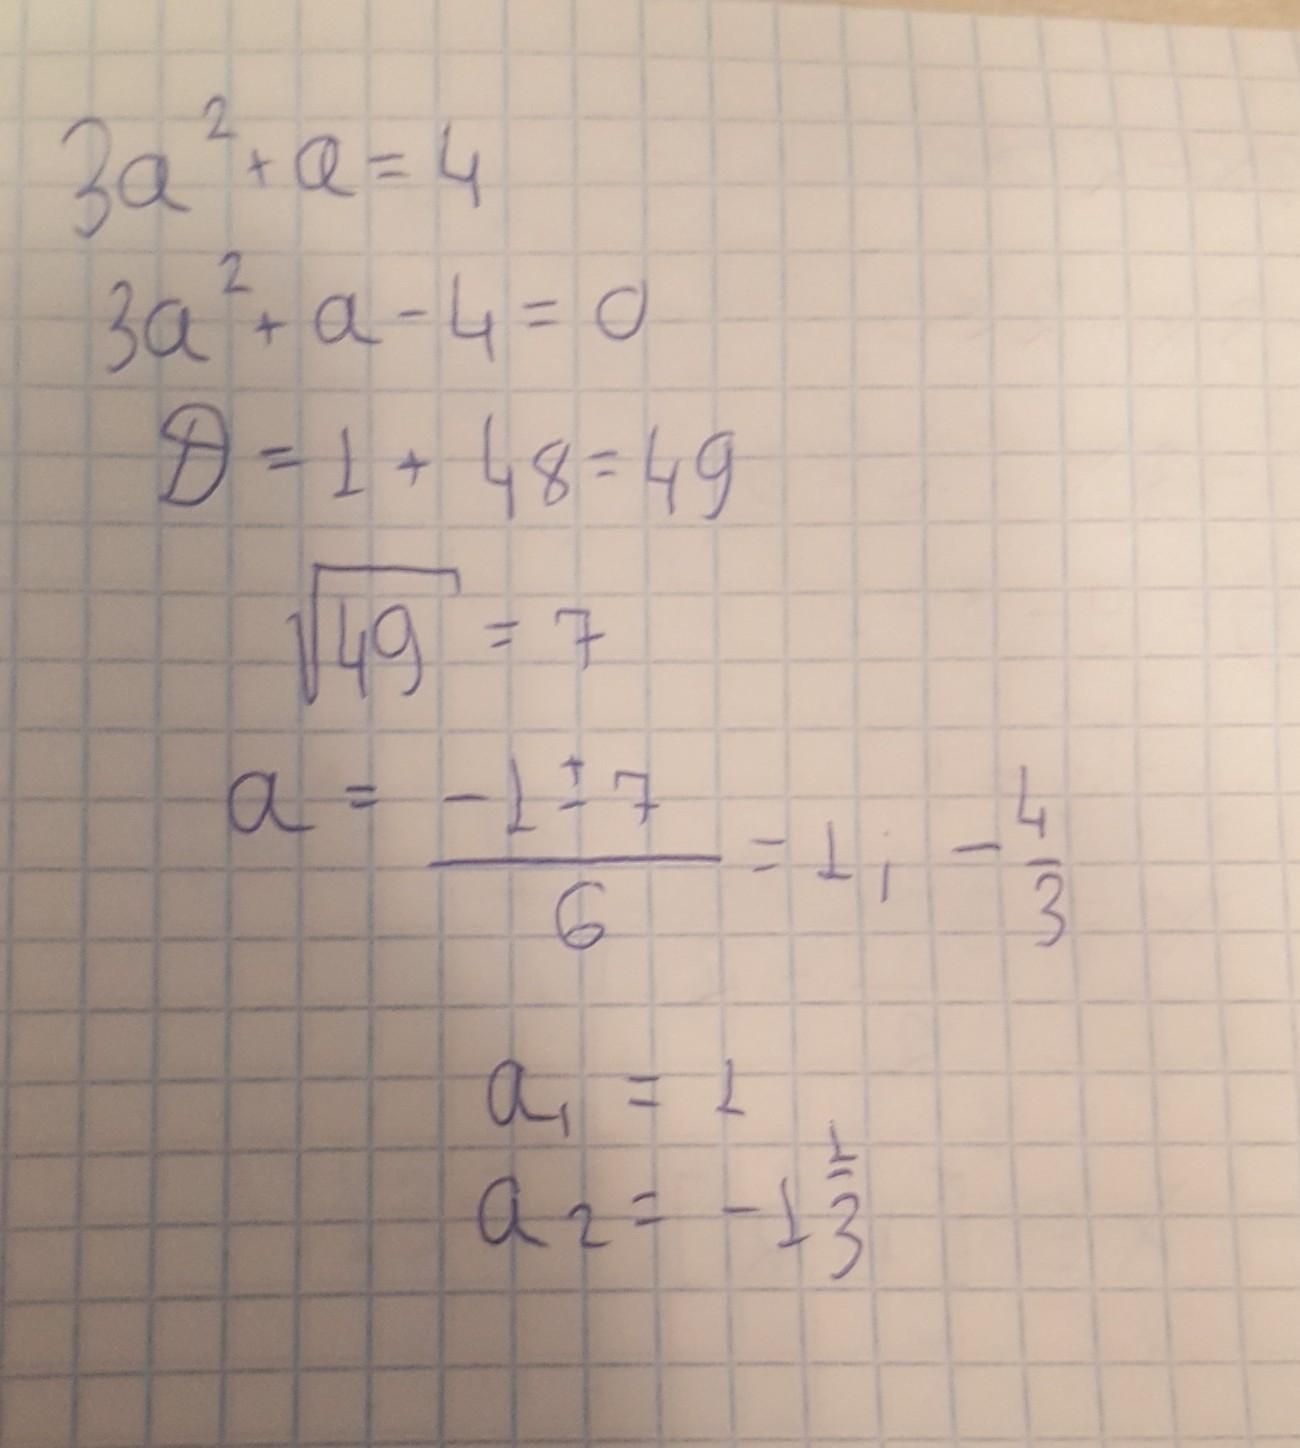 3a² + a = 4
3a² + a - 4 = 0
D = 1 + 48 = 49
√49 = 7
a = (-1 ± 7)/6 = 1; -4/3
a₁ = 1
a₂ = -1 1/3